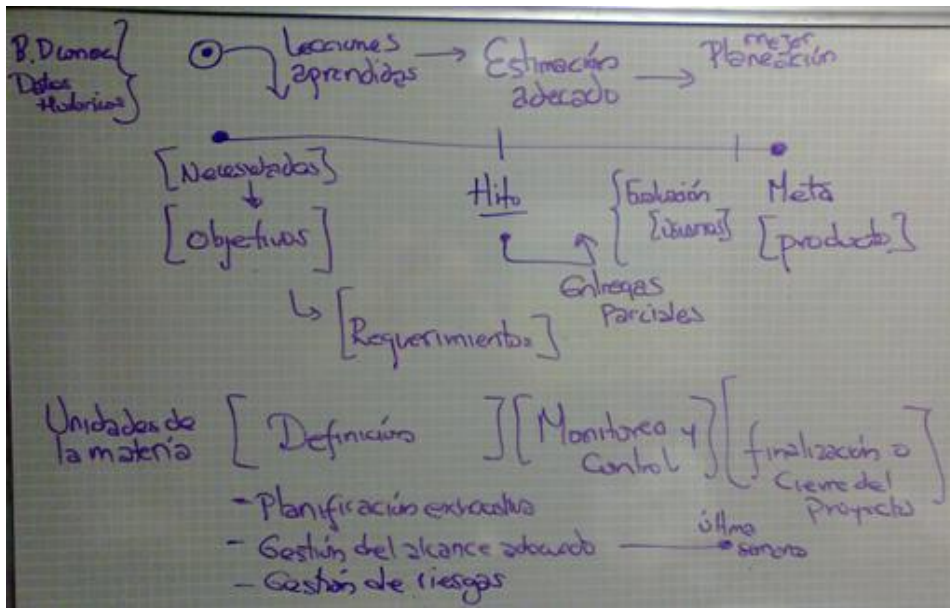 Datos
Lecciones
aprendidas
Estimación
adecuado
mejor
Planeación
[Necesidades]
[Objetivos]
[Requerimientos]
Hito
Entregas
Parciales
[usuarios]
Meta
[producto]
Unidades de
la materia
[Definición]
[Monitoreo y
Control]
[finalización o
Cierre del
Proyecto]
- Planificación exhaustiva
- Gestión del alcance adecuado
última
semana
- Gestión de riesgas